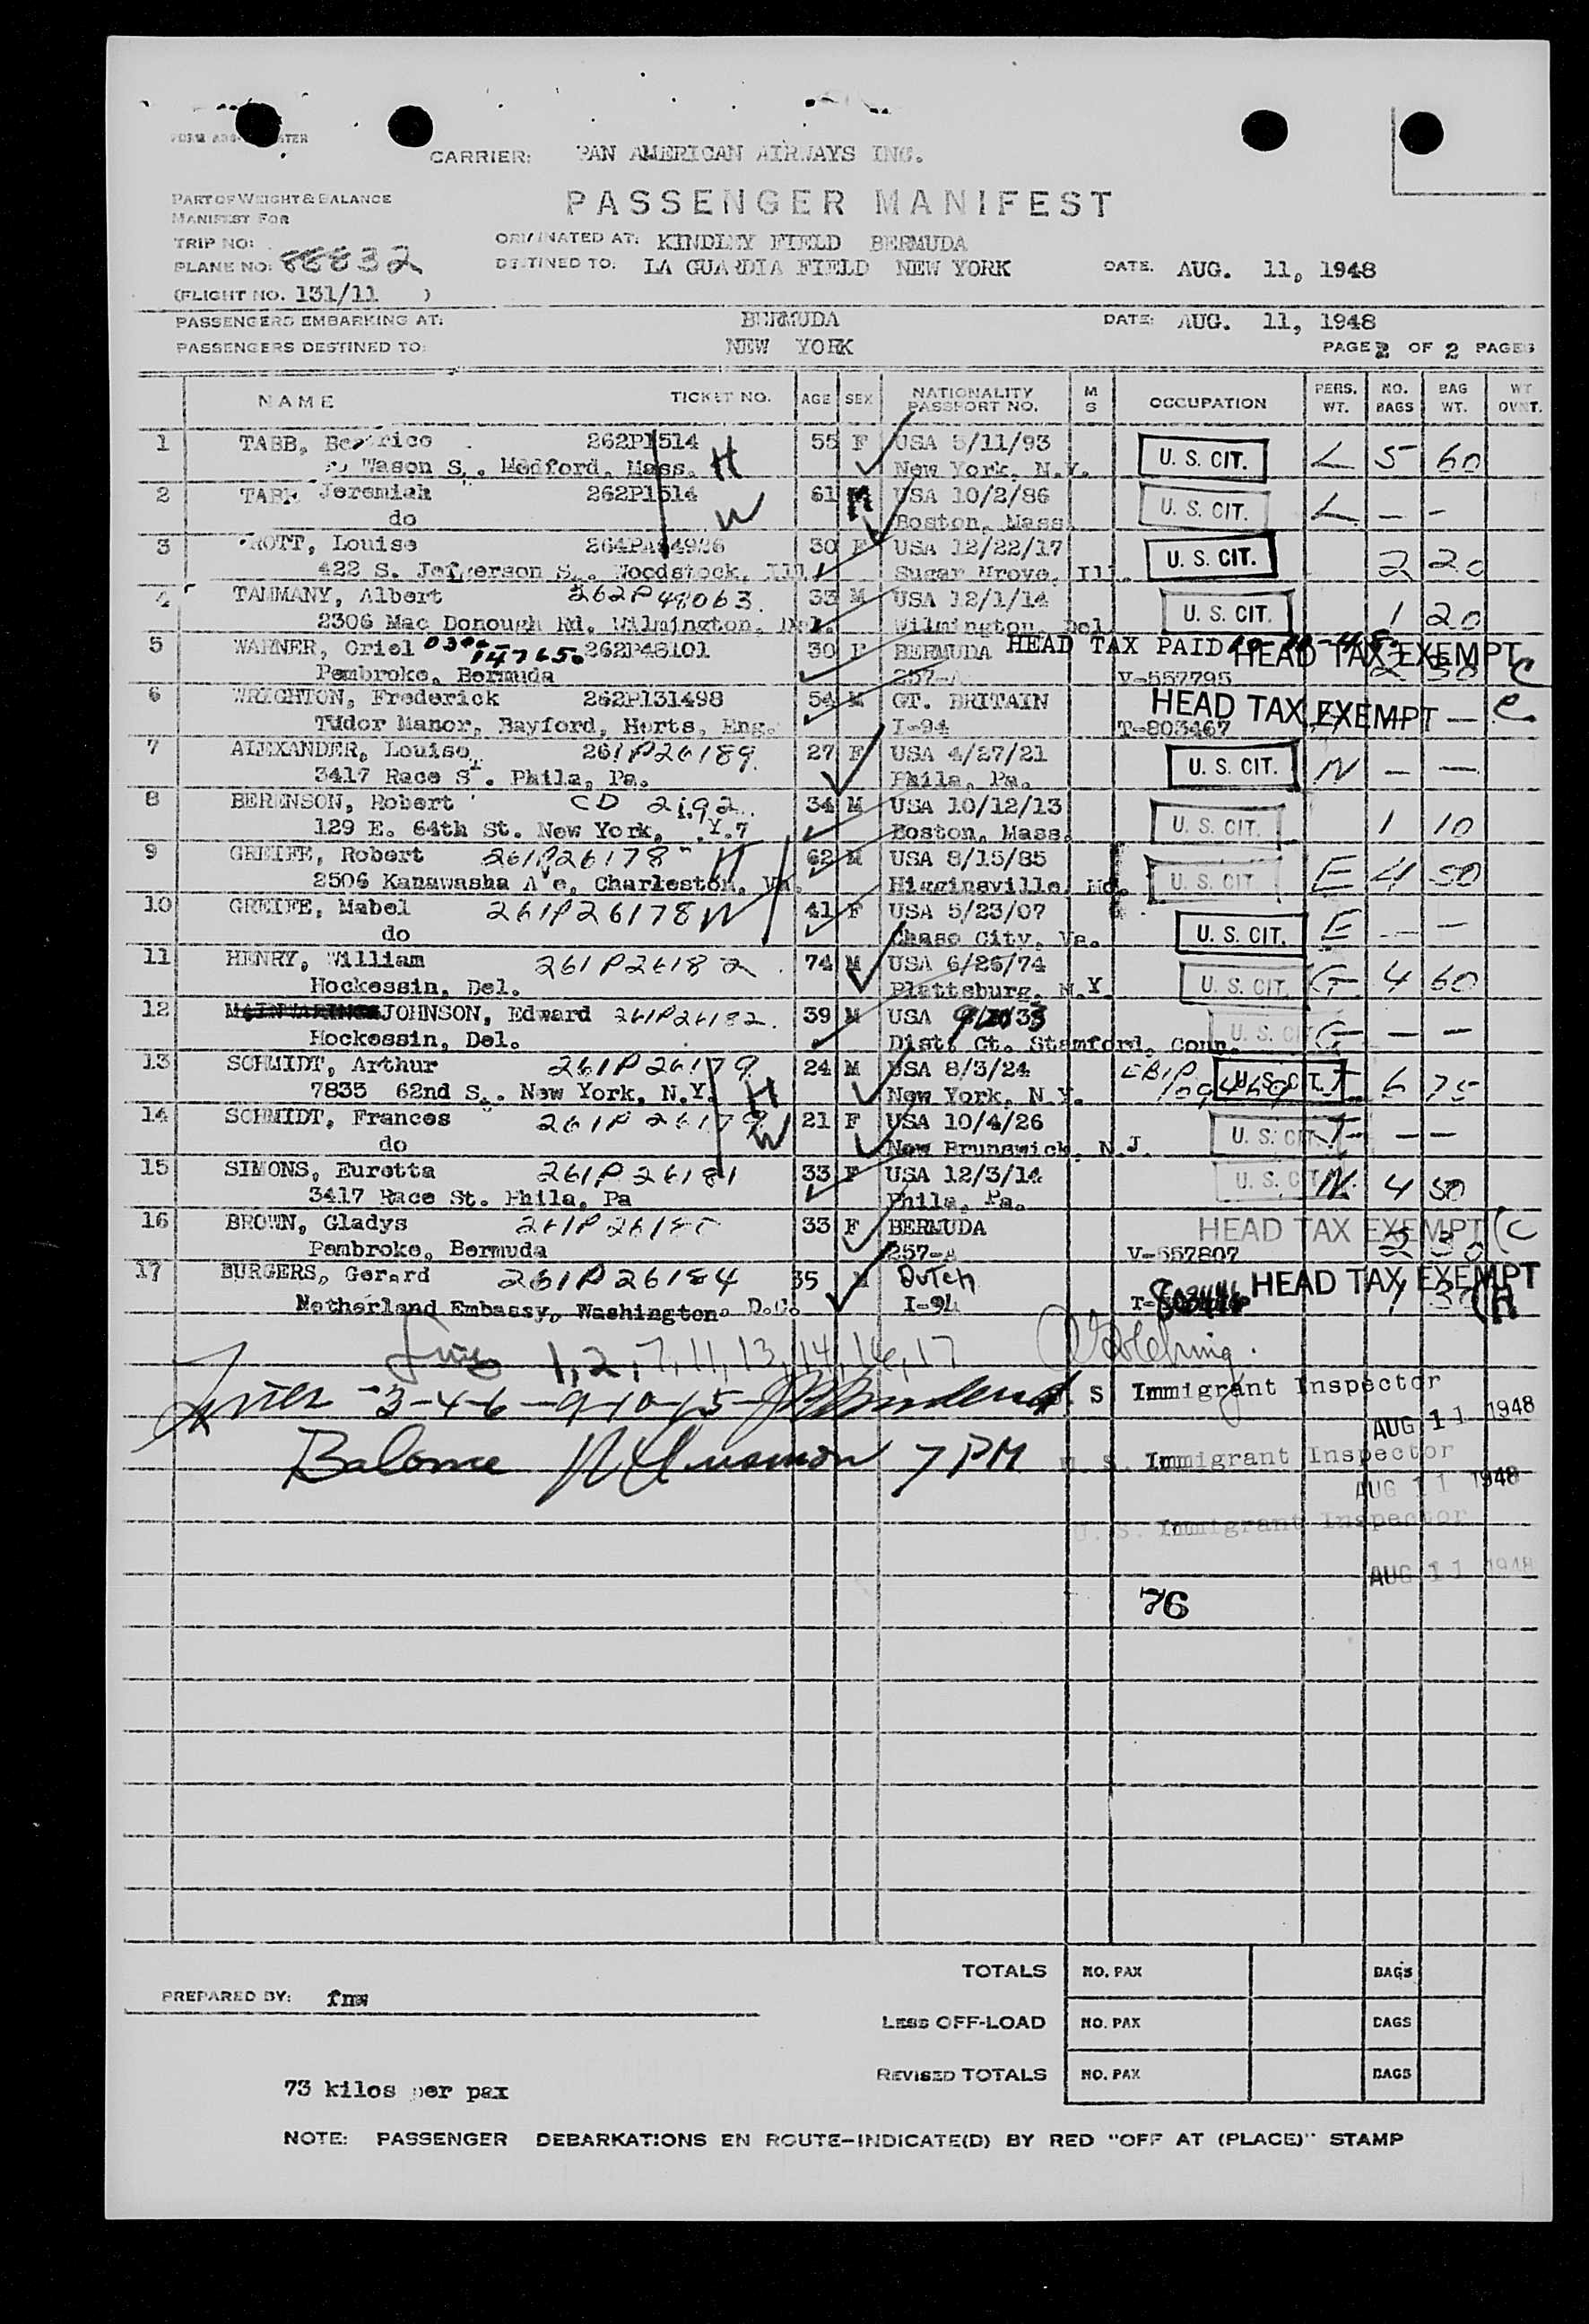 CARRIER: PAN AMERICAN AIRWAYS INC.
PART OF WEIGHT & BALANCE
MANIFEST FOR
PASSENGER MANIFEST
TRIP NO:
ORIGINATED AT: KINDLEY FIELD BERMUDA
PLANE NO: 88832
DESTINED TO: LA GUARDIA FIELD NEW YORK DATE: AUG. 11, 1948
(FLIGHT NO. 131/11 )
PASSENGERS EMBARKING AT: BERMUDA DATE: AUG. 11, 1948
PASSENGERS DESTINED TO: NEW YORK PAGE 2 OF 2 PAGES
NAME TICKET NO. AGE SEX NATIONALITY PASSPORT NO. M S OCCUPATION PERS. WT. NO. BAGS BAG WT. WT OVWT.
1 TABB, Beatrice 262P1514 H 55 F USA 5/11/93 U. S. CIT. L 5 60
Wason S. Medford, Mass. New York, N.Y.
2 TABB Jeremiah 262P1514 W 61 M USA 10/2/86 U. S. CIT. L - -
do Boston, Mass
3 Louise 30 F USA 12/22/17 U. S. CIT. 2 20
422 S. Jefferson S. Woodstock, Ill. Sugar Grove, Ill.
4 TAMMANY, Albert 262P48063. 33 M USA 12/1/14 U. S. CIT. 1 20
2306 Mac Donough Rd. Wilmington, Del. Wilmington Del
5 WARNER, Oriel 262P48101 30 F BERMUDA HEAD TAX PAID HEAD TAX EXEMPT C
Pembroke, Bermuda 257-A V-557795
6 WRIGHTON, Frederick 262P131498 54 M GT. BRITAIN HEAD TAX EXEMPT - C
Tudor Manor, Bayford, Herts, Eng. I-94 T-803467
7 ALEXANDER, Louise 261P26189. 27 F USA 4/27/21 U. S. CIT. N - -
3417 Race St. Phila, Pa. Phila, Pa.
8 BERENSON, Robert CD 2192. 34 M USA 10/12/13 U. S. CIT. 1 10
129 E. 64th St. New York, .Y.7 Boston, Mass.
9 GREIFE, Robert 261P26178 H 62 M USA 8/15/85 U. S. CIT E 4 50
2506 Kanawasha Ave, Charleston, Va. Higginsville, Mo.
10 GREIFE, Mabel 261P26178 W 41 F USA 5/23/07 U. S. CIT. E - -
do Chase City, Va.
11 HENRY, William 261P26182. 74 M USA 6/25/74 U. S. CIT. G 4 60
Hockessin, Del. Plattsburg, N.Y.
12 JOHNSON, Edward 261P26182. 39 M USA U. S. CIT G - -
Hockessin, Del. Dist. Ct. Stamford, Conn.
13 SCHMIDT, Arthur 261P26179 H 24 M USA 8/3/24 U.S.CIT. J 6 75
7835 62nd S. New York, N.Y. New York, N.Y.
14 SCHMIDT, Frances 261P26179 W 21 F USA 10/4/26 U. S. CIT J - -
do New Brunswick, N.J.
15 SIMONS, Euretta 261P26181 33 F USA 12/3/14 U. S. CIT N 4 50
3417 Race St. Phila, Pa Phila, Pa.
16 BROWN, Gladys 33 F BERMUDA HEAD TAX EXEMPT (C
Pembroke, Bermuda 257-A V-557807
17 BURGERS, Gerard 261P26184 35 M Dutch HEAD TAX EXEMPT
Netherland Embassy, Washington. D.C. I-94 T- (H
Lines 1,2,7,11,13,14,16,17
Lines -3-4-6-9-10-15- U. S Immigrant Inspector
AUG 11 1948
Balance 7 PM U. S. Immigrant Inspector
AUG 11 1948
U. S. Immigrant Inspector
AUG 11 1948
76
TOTALS NO. PAX BAGS
PREPARED BY: fnw
LESS OFF-LOAD NO. PAX BAGS
REVISED TOTALS NO. PAX BAGS
73 kilos per pax
NOTE: PASSENGER DEBARKATIONS EN ROUTE-INDICATE(D) BY RED "OFF AT (PLACE)" STAMP